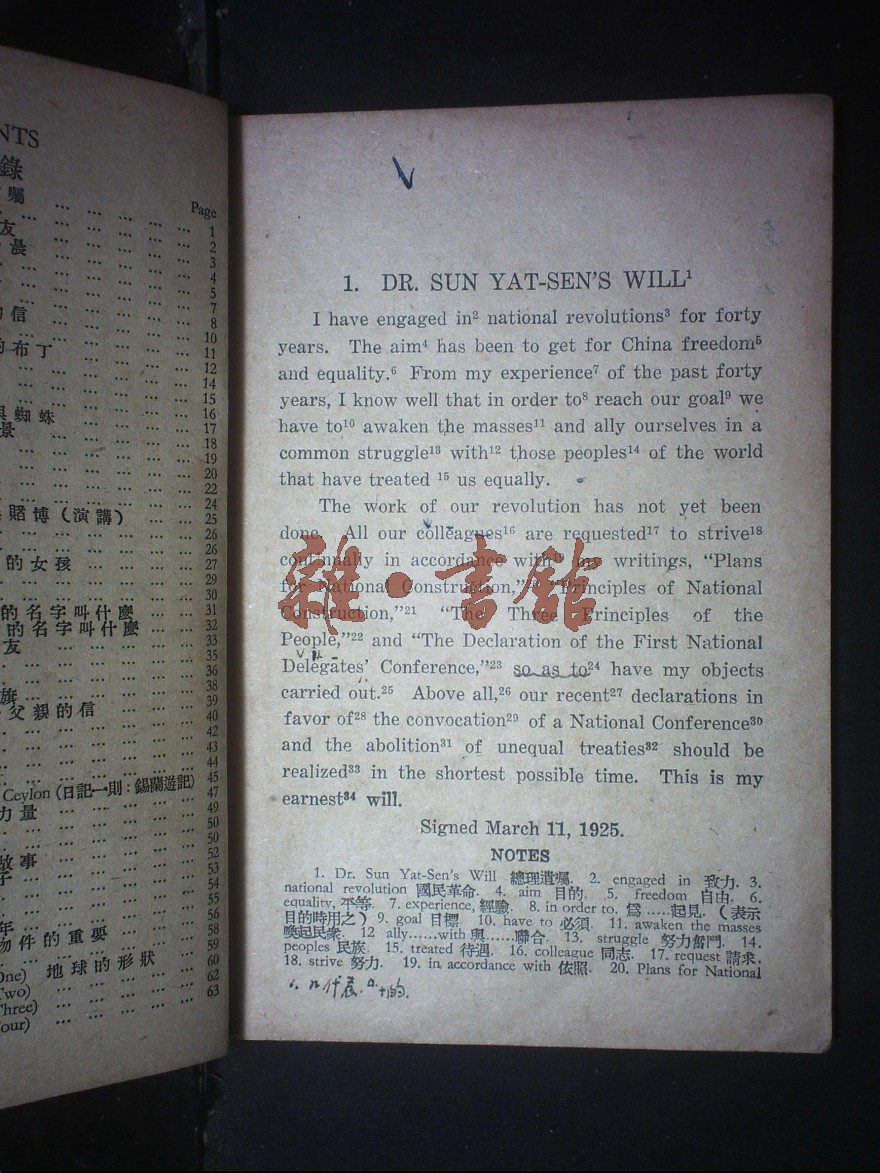 NTS
錄
囑
Page
... ... ... ... ... 1
友 ... ... ... ... ... 2
晨 ... ... ... ... ... 3
... ... ... ... ... 4
... ... ... ... ... 5
... ... ... ... ... 7
的信 ... ... ... ... ... 8
... ... ... ... ... 10
的布丁 ... ... ... ... 11
... ... ... ... ... 12
... ... ... ... ... 14
... ... ... ... ... 15
蜘蛛 ... ... ... ... 16
景 ... ... ... ... ... 17
... ... ... ... ... 18
... ... ... ... ... 19
... ... ... ... ... 20
... ... ... ... ... 22
... ... ... ... ... 24
賭博(演講) ... ... 25
... ... ... ... ... 26
... ... ... ... ... 26
的女孩 ... ... ... ... 27
... ... ... ... ... 29
... ... ... ... ... 30
的名字叫什麼 ... ... 31
的名字叫什麼 ... ... 32
友 ... ... ... ... ... 33
... ... ... ... ... 35
... ... ... ... ... 36
旗 ... ... ... ... ... 38
父親的信 ... ... ... 39
... ... ... ... ... 40
... ... ... ... ... 42
... ... ... ... ... 43
... ... ... ... ... 44
... ... ... ... ... 45
Ceylon (日記一則:錫蘭遊記) 47
力量 ... ... ... ... 49
... ... ... ... ... 50
... ... ... ... ... 50
故事 ... ... ... ... 52
子 ... ... ... ... ... 53
... ... ... ... ... 54
... ... ... ... ... 55
年 ... ... ... ... ... 56
物件的重要 ... ... ... 58
... ... ... ... ... 59
One) 地球的形狀 ... ... 60
Two) ... ... ... ... 62
Three) ... ... ... ... 63
our) ... ... ... ...
1. DR. SUN YAT-SEN'S WILL¹
I have engaged in² national revolutions³ for forty
years. The aim⁴ has been to get for China freedom⁵
and equality.⁶ From my experience⁷ of the past forty
years, I know well that in order to⁸ reach our goal⁹ we
have to¹⁰ awaken the masses¹¹ and ally ourselves in a
common struggle¹³ with¹² those peoples¹⁴ of the world
that have treated ¹⁵ us equally.
The work of our revolution has not yet been
done. All our colleagues¹⁶ are requested¹⁷ to strive¹⁸
continually in accordance with¹⁹ my writings, “Plans
for National Construction,”²⁰ “Principles of National
Construction,”²¹ “The Three Principles of the
People,”²² and “The Declaration of the First National
Delegates’ Conference,”²³ so as to²⁴ have my objects
carried out.²⁵ Above all,²⁶ our recent²⁷ declarations in
favor of²⁸ the convocation²⁹ of a National Conference³⁰
and the abolition³¹ of unequal treaties³² should be
realized³³ in the shortest possible time. This is my
earnest³⁴ will.
Signed March 11, 1925.
NOTES
1. Dr. Sun Yat-Sen's Will 總理遺囑. 2. engaged in 致力. 3.
national revolution 國民革命. 4. aim 目的. 5. freedom 自由. 6.
equality, 平等. 7. experience, 經驗. 8. in order to. 爲.....起見. (表示
目的時用之) 9. goal 目標. 10. have to 必須. 11. awaken the masses
喚起民衆. 12 ally......with 與......聯合. 13. struggle 努力奮鬥. 14.
peoples 民族. 15. treated 待遇. 16. colleague 同志. 17. request 請求.
18. strive 努力. 19. in accordance with 依照. 20. Plans for National
代表
雜·書館